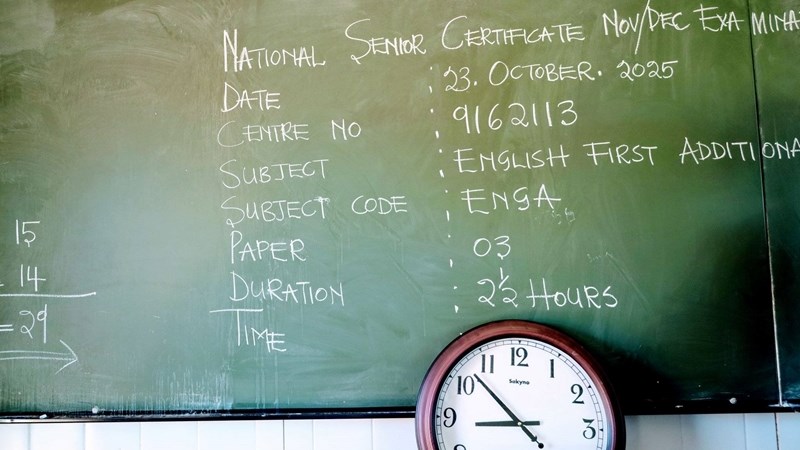 NATIONAL SENIOR CERTIFICATE NOV/DEC EXAMINA
DATE : 23. OCTOBER. 2025
CENTRE NO : 9162113
SUBJECT : ENGLISH FIRST ADDITIONA
SUBJECT CODE : ENGA
PAPER : 03
DURATION : 2½ HOURS
TIME
15
14
= 29
12
11 1
10 2
9 3
Sokyno